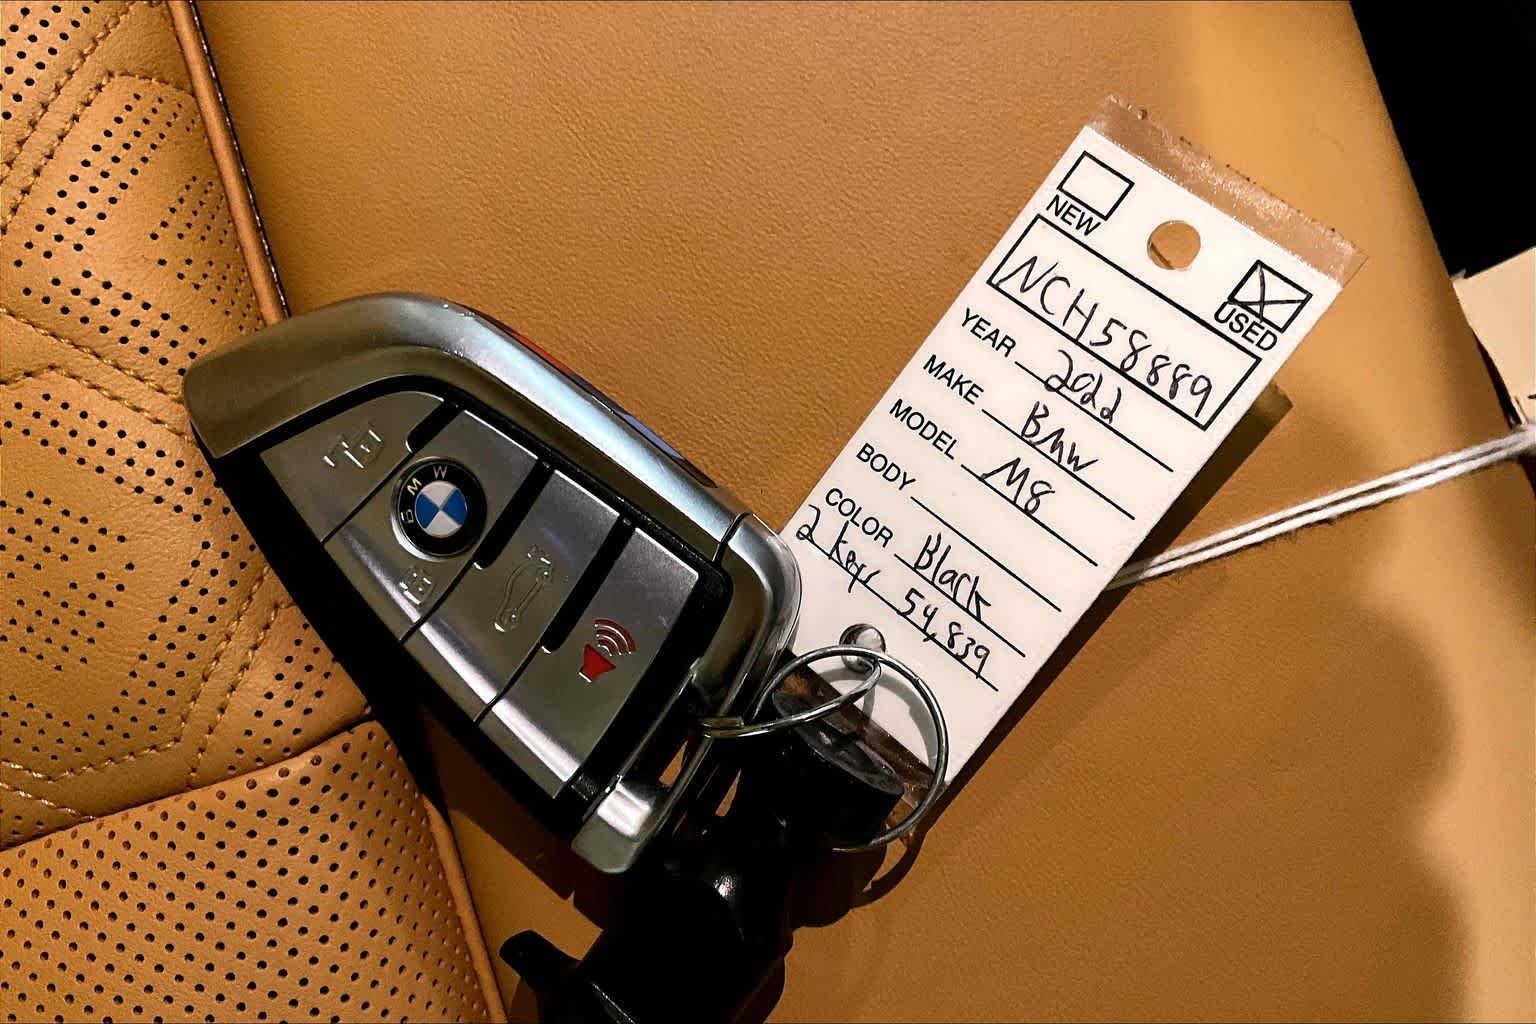 NEW
USED
NCH58889
YEAR 2022
MAKE BMW
MODEL M8
BODY
COLOR Black
2 keys 54,839
BMW